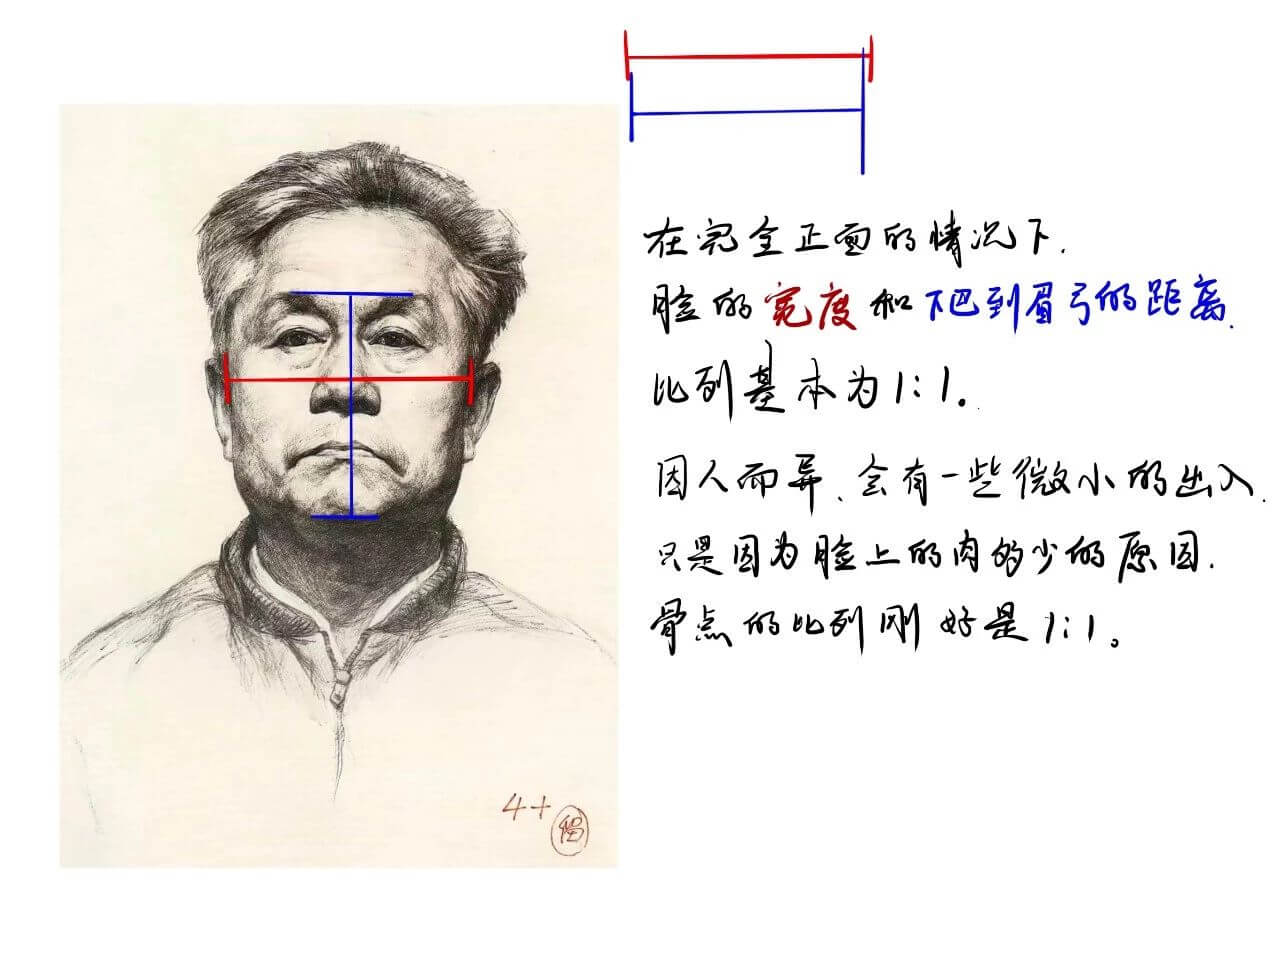 在完全正面的情况下.
脸的宽度和下巴到眉弓的距离.
比列基本为1:1。
因人而异、会有一些微小的出入.
只是因为脸上的肉的少的原因.
骨点的比列刚好是1:1。
4+